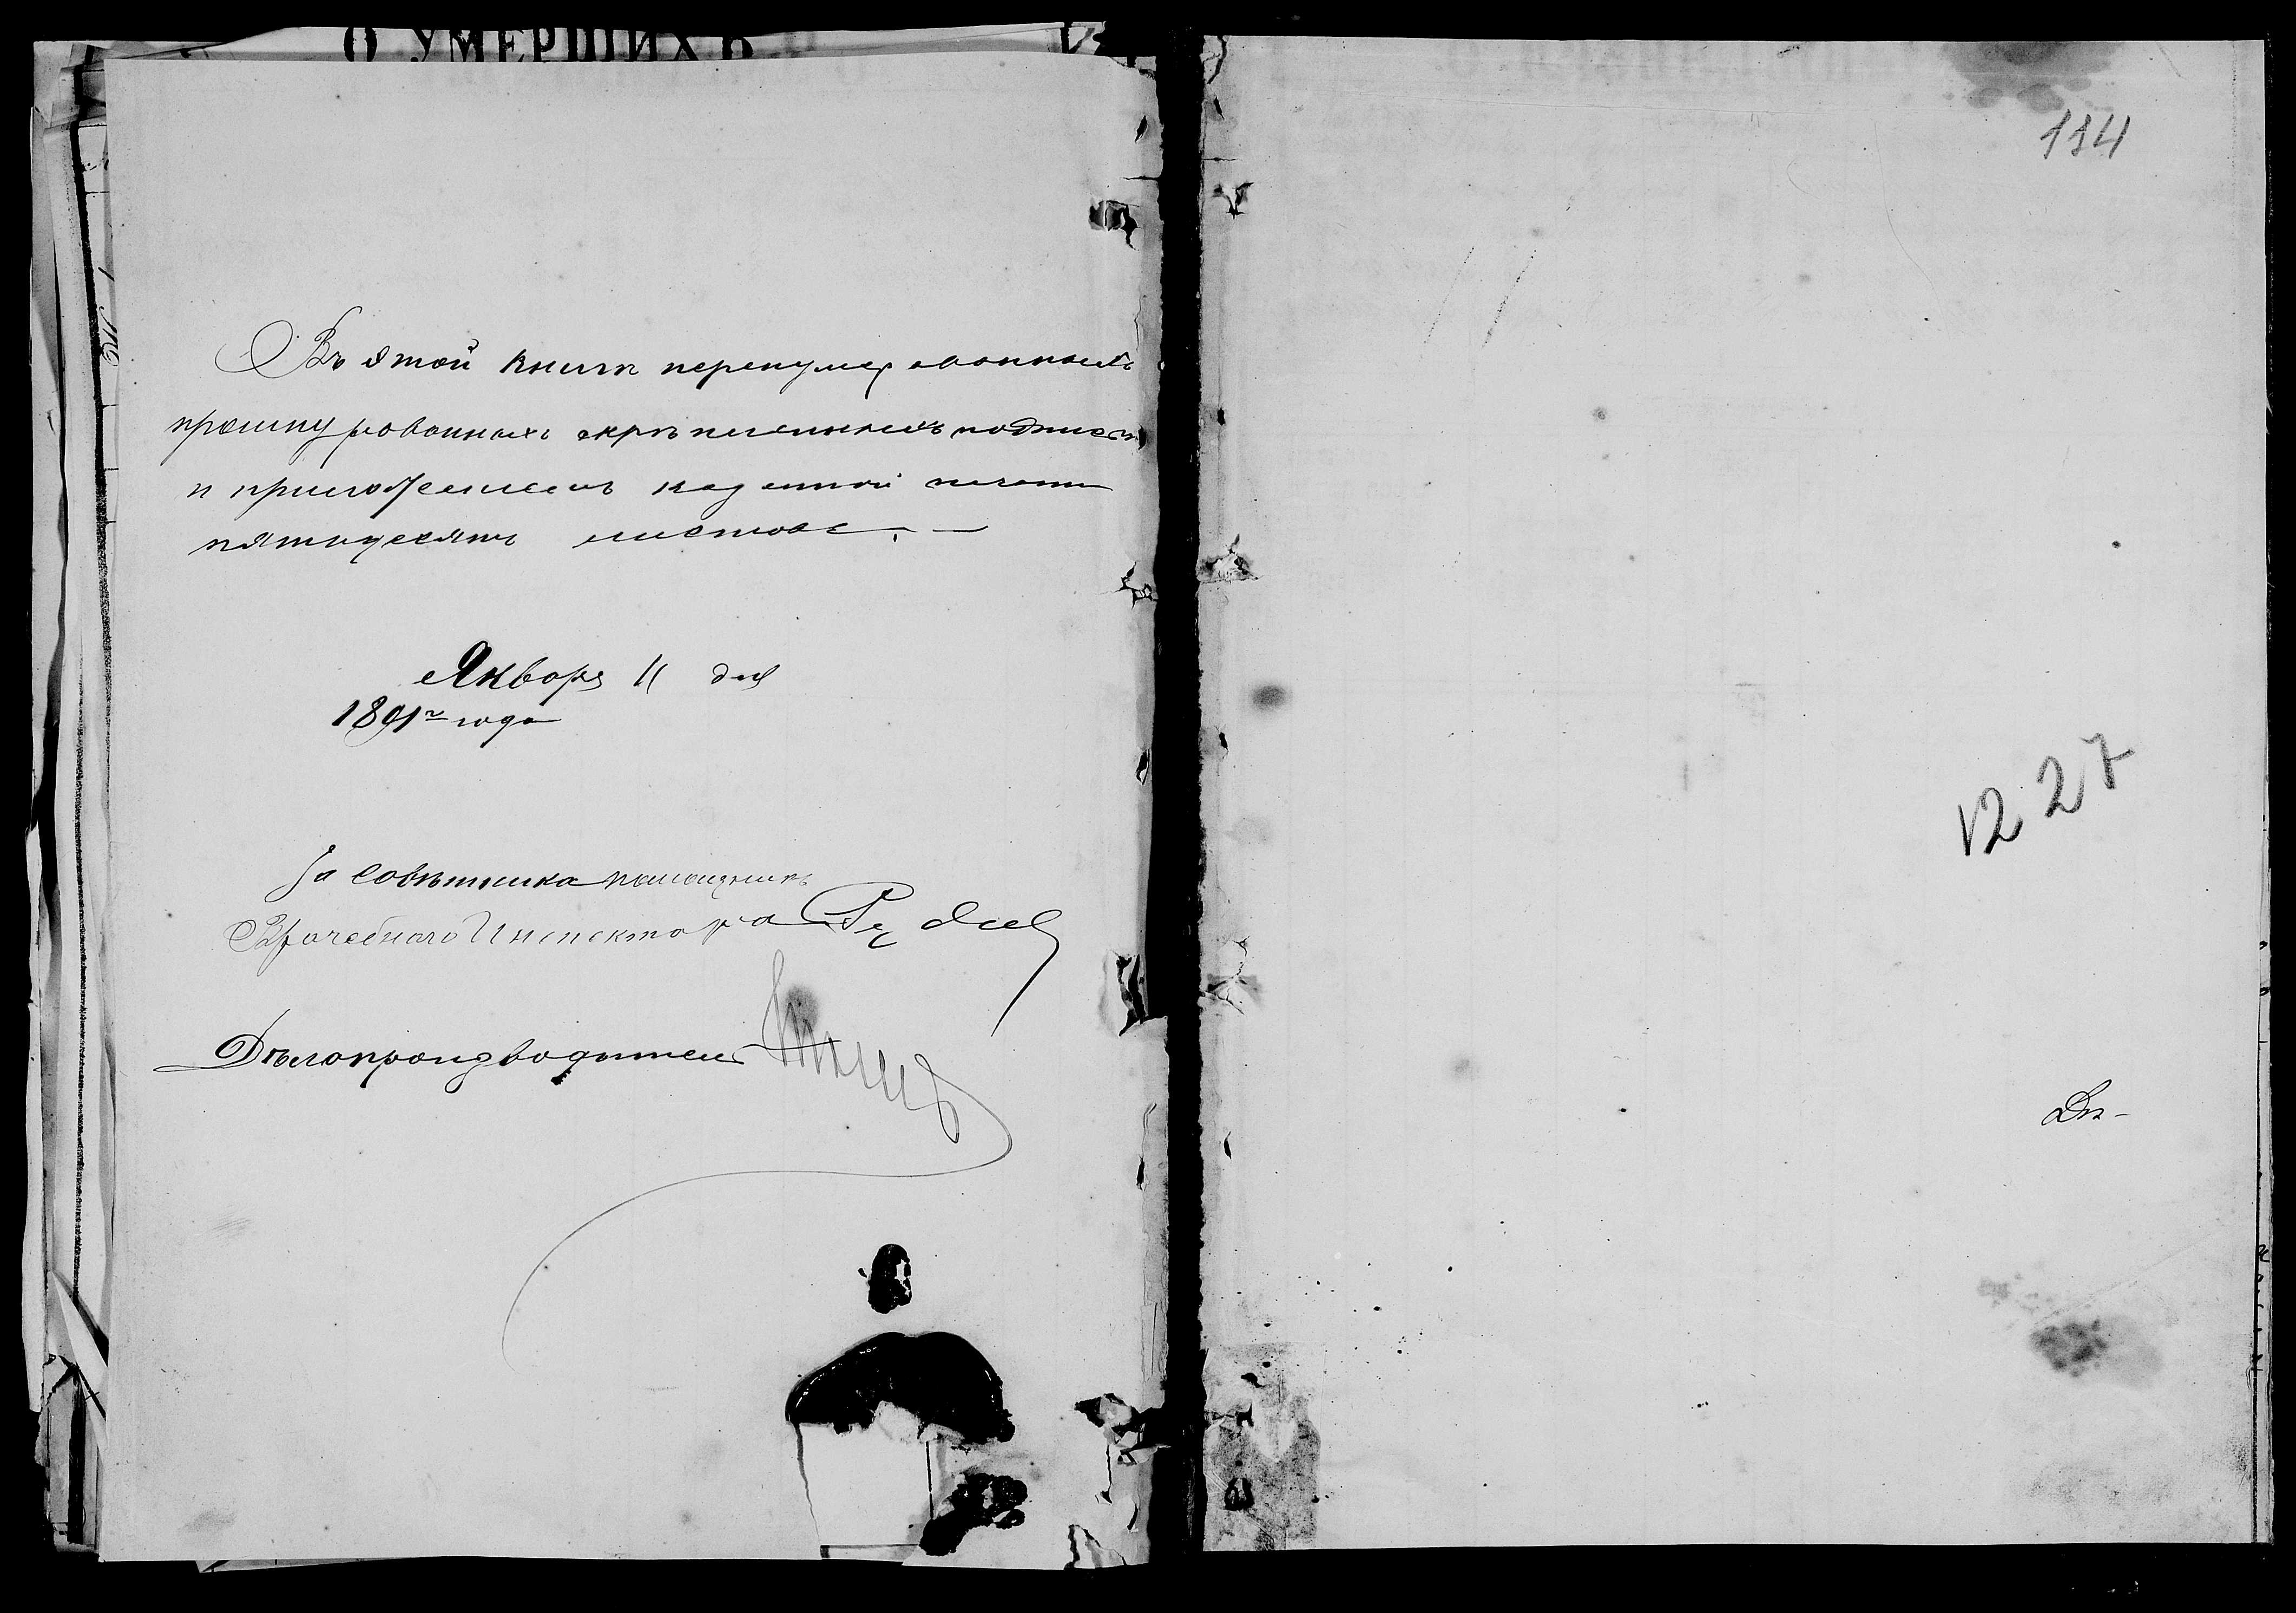 О УМЕРШИХЪ
Въ этой книгѣ перенумерованныхъ
прошнурованныхъ скрѣпленныхъ подписью
и приложеніемъ казенной печати
пятьдесятъ листовъ. —
Января 11 дня
1891 г. года
За Совѣтника помощникъ
Врачебнаго Инспектора
Дѣлопроизводитель
114
1227
Дѣ-